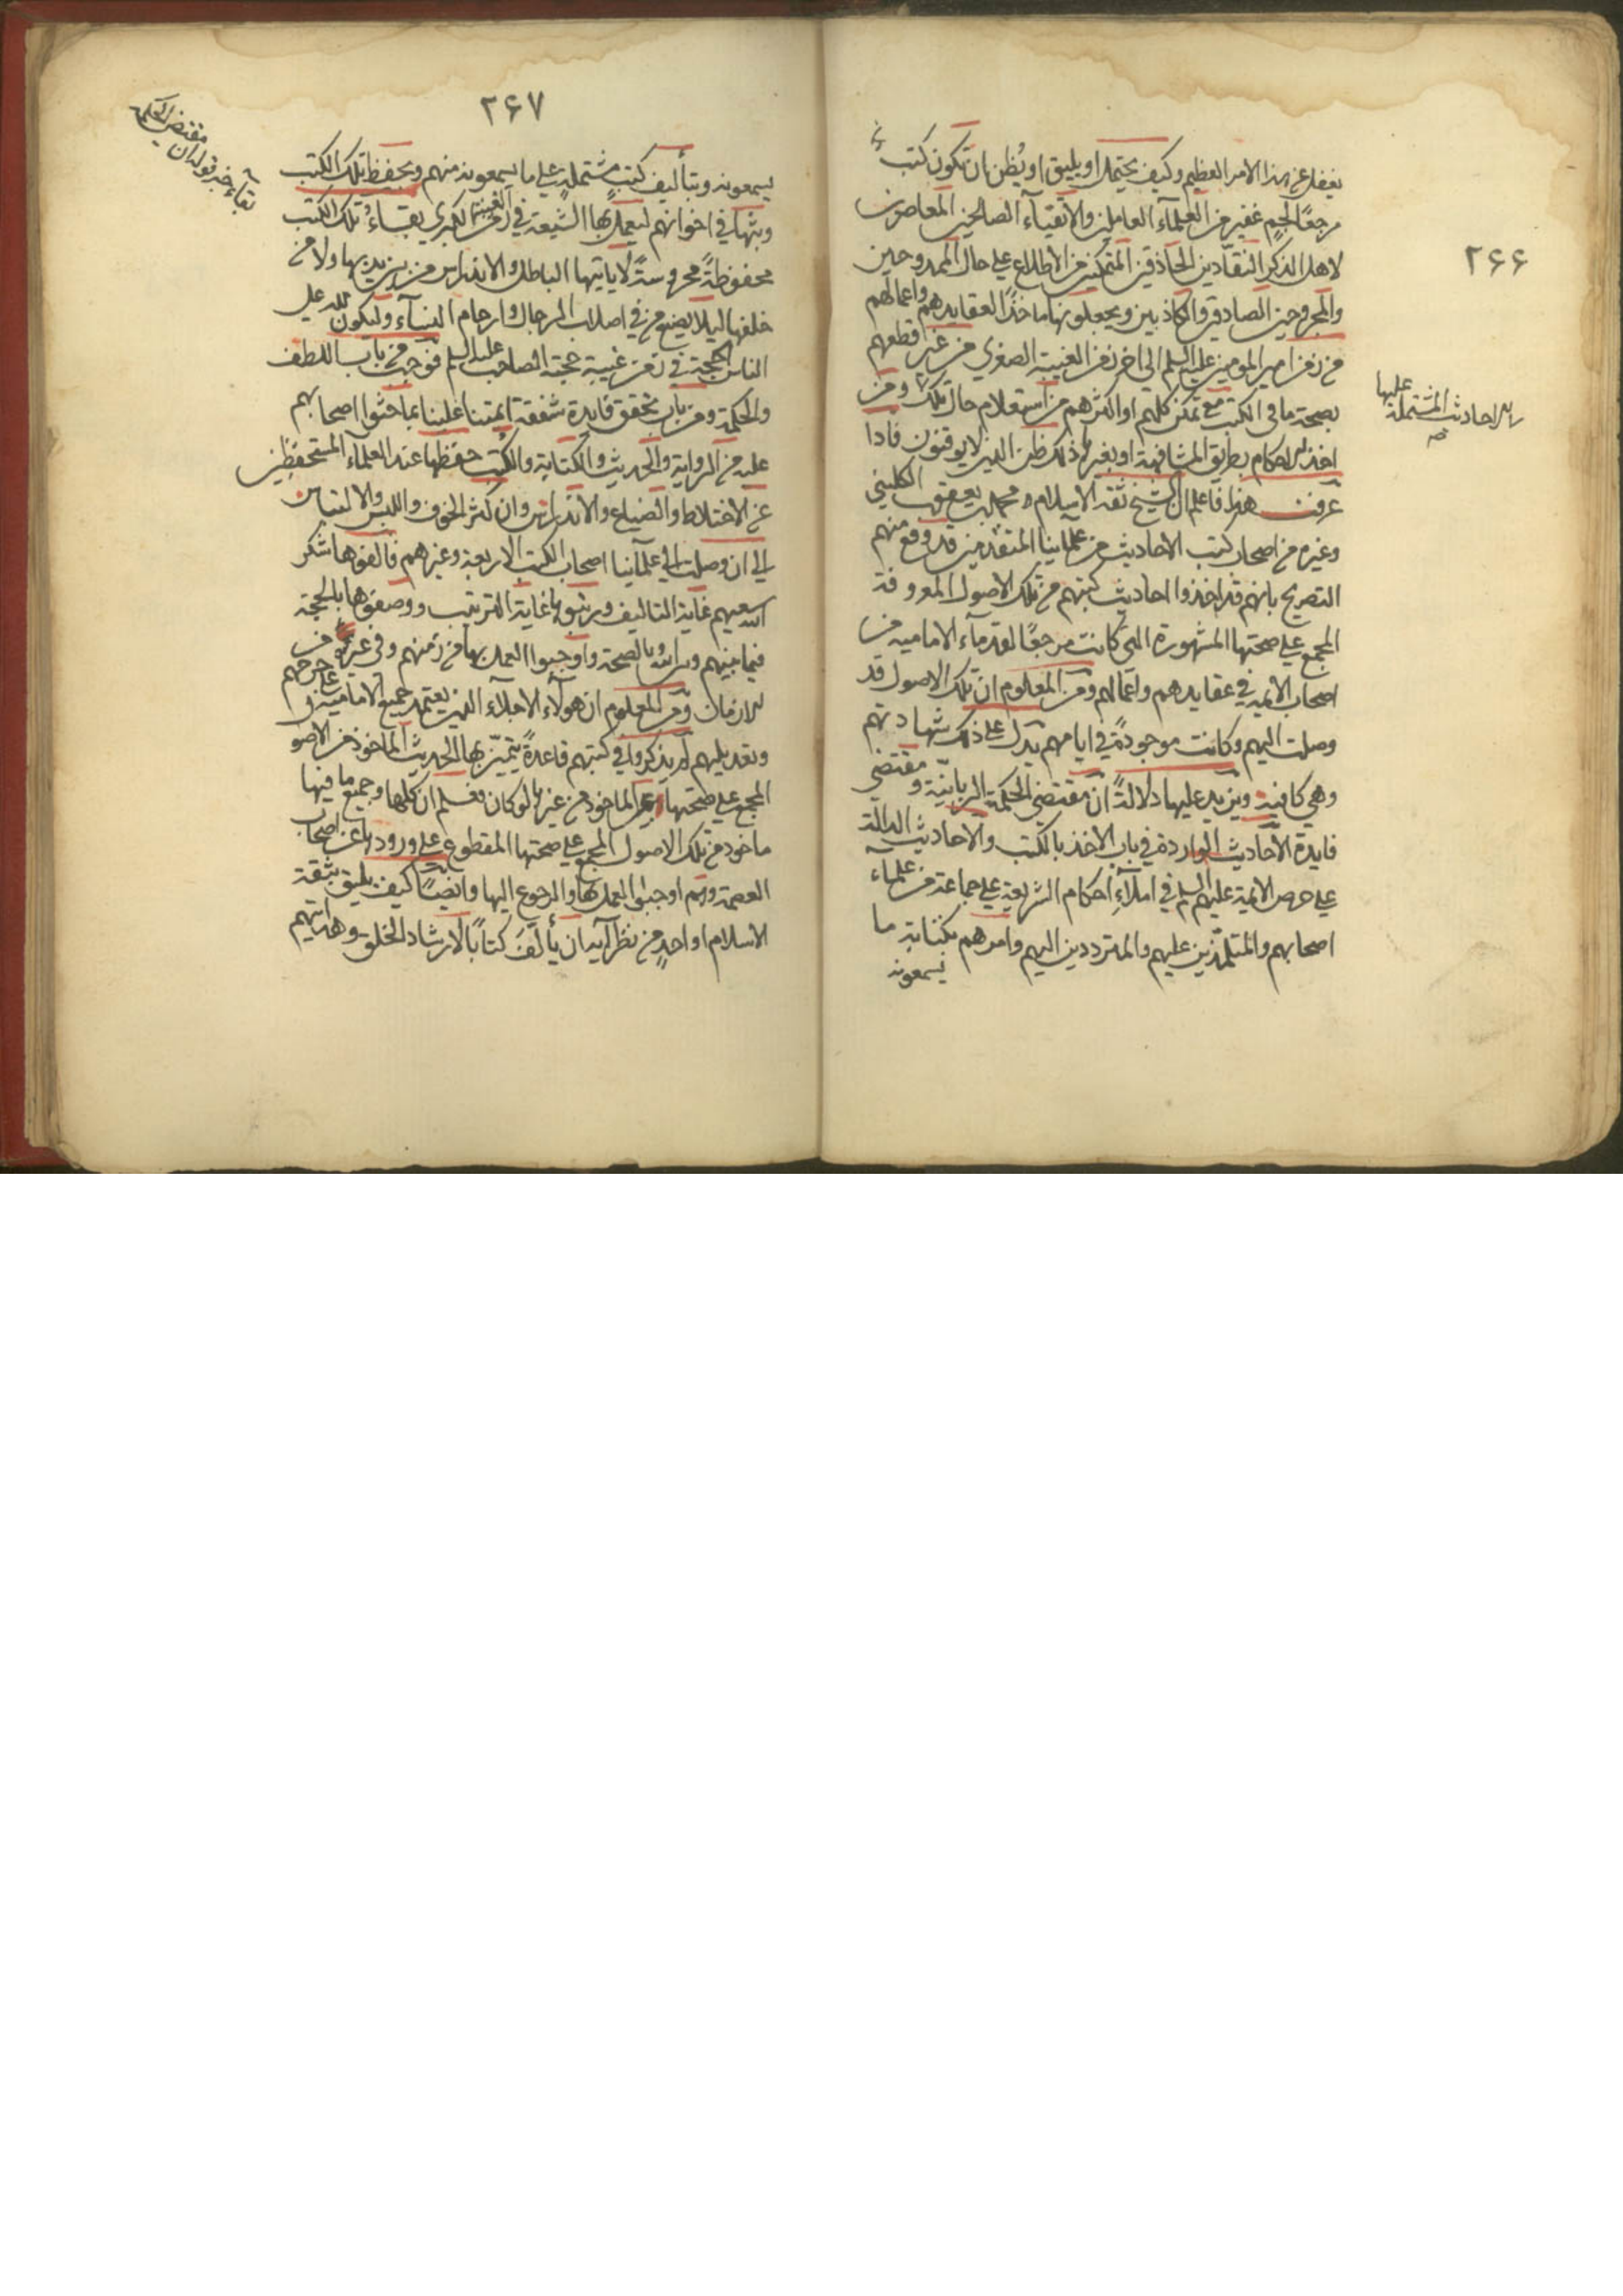 ۲۶۶
يغفل عن هذا الامر العظيم وكيف يحتمل او يليق او يُظن ان تكون كتب
مرجعًا لجم غفير من العلمآء العاملين والاتقيآء الصالحين المعاصرين
لاهل الذكر النقّادين الحاذقين المتمكنين من الاطلاع على حال الممدوحين
والمجروحين الصادقين والكاذبين ويجعلونها ماخذًا لعقايدهم واعمالهم
من زمن امير المومنين عليه السلم الى اخر زمن الغيبة الصغرى من غير قطعهم
بصحة ما فى الكتب مع تمكن كلهم او اكثرهم من استعلام حال تلك ومن
اخذ الاحكام بطريق المشافهة او بغيرها ذلك ظن الذين لا يوقنون فاذا
عرفت هذا فاعلم ان الشيخ ثقة الاسلام محمد بن يعقوب الكليني
وغيره من اصحاب كتب الاحاديث من علماينا المتقدمين قد وقع منهم
التصريح بانهم قد اخذوا احاديث كتبهم من تلك الاصول المعروفة
المجمع على صحتها المشهورة التي كانت مرجعًا لقدمآء الامامية من
اصحاب الايمة في عقايدهم واعمالهم ومن المعلوم ان تلك الاصول قد
وصلت اليهم وكانت موجودة في ايامهم يدل على ذلك شهادتهم
وهي كافية ويزيد عليها دلالةً ان مقتضى الحكمة الربانيّة ومقتضى
فايدة الاحاديث الواردة في باب الاخذ بالكتب والاحاديث الدالة
على حرص الايمة عليهم السلم في املآء احكام الشريعة على جماعة من علمآء
اصحابهم والمتلمّذين عليهم والمترددين اليهم وامرهم بكتابة ما
يسمعونه
الاحاديث المشتملة عليها
۲۶۷
يسمعونه وبتأليف كتب مشتملة على ما يسمعونه منهم وبحفظ تلك الكتب
وبثها في اخوانهم ليعمل بها الشيعة في زمن الغيبة الكبرى بقاءُ تلك الكتب
محفوظةً محروسةً لا ياتيها الباطل والاندراس من بين يديها ولا من
خلفها ليلا يضيع من في اصلاب الرجال وارحام النسآء وليكون لله على
الناس الحجة في زمن غيبة حجته الصاحب عليه السلم فوجب من باب اللطف
والحكمة ومن باب تحقق فايدة شفقة ايمتنا علينا بما حثوا اصحابهم
عليه من الرواية والحديث والكتابة والكتب حفظها عند العلماء المستحفظين
عن الاختلاط والضياع والاندراس وان كثر الخوف واللبس والالتباس
الى ان وصلت الى علمآينا اصحاب الكتب الاربعة وغيرهم فالفوها شكر
الله سعيهم غاية التاليف ورتبوها غاية الترتيب ووصفوها بالحجة
فيما بينهم وبين الله وبالصحة واوجبوا العمل بها في زمنهم وفي غيره من
الازمان ومن المعلوم ان هولآء الاجلآء الذين يعتمد جميع الامامية على جرحهم
وتعديلهم لم يذكروا في كتبهم قاعدةً يتميّز بها الحديث الماخوذ من الاصو
المجمع على صحتها عن الماخوذ من غيرها لو كان فعلم ان كلها وجميع ما فيها
ماخوذ من تلك الاصول المجمع على صحتها المقطوع على ورودها عن اصحاب
العصمة وانهم اوجبوا العمل بها والرجوع اليها وايضًا كيف يليق بثقة
الاسلام او احدٍ من نظرآيه ان يألّف كتابًا لارشاد الخلق وهدايتهم
بقآء خبر قوله ان مقتضى الحكمة